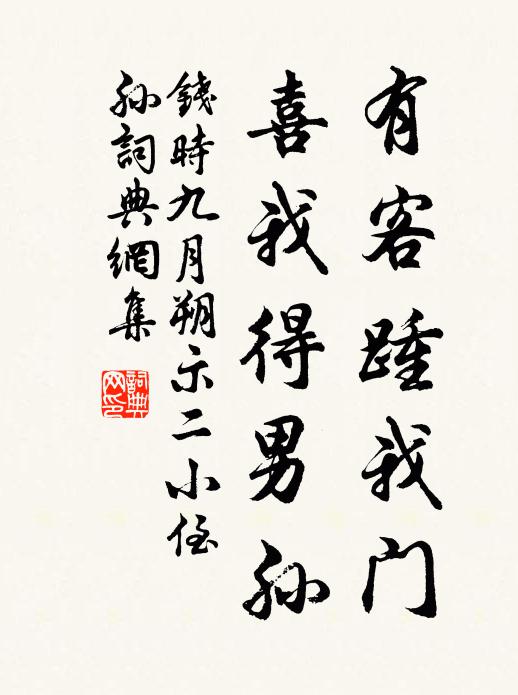 有客踵我门
喜我得男孙
錢時九月朔示二小侄
孙詞典網集
詞典网印